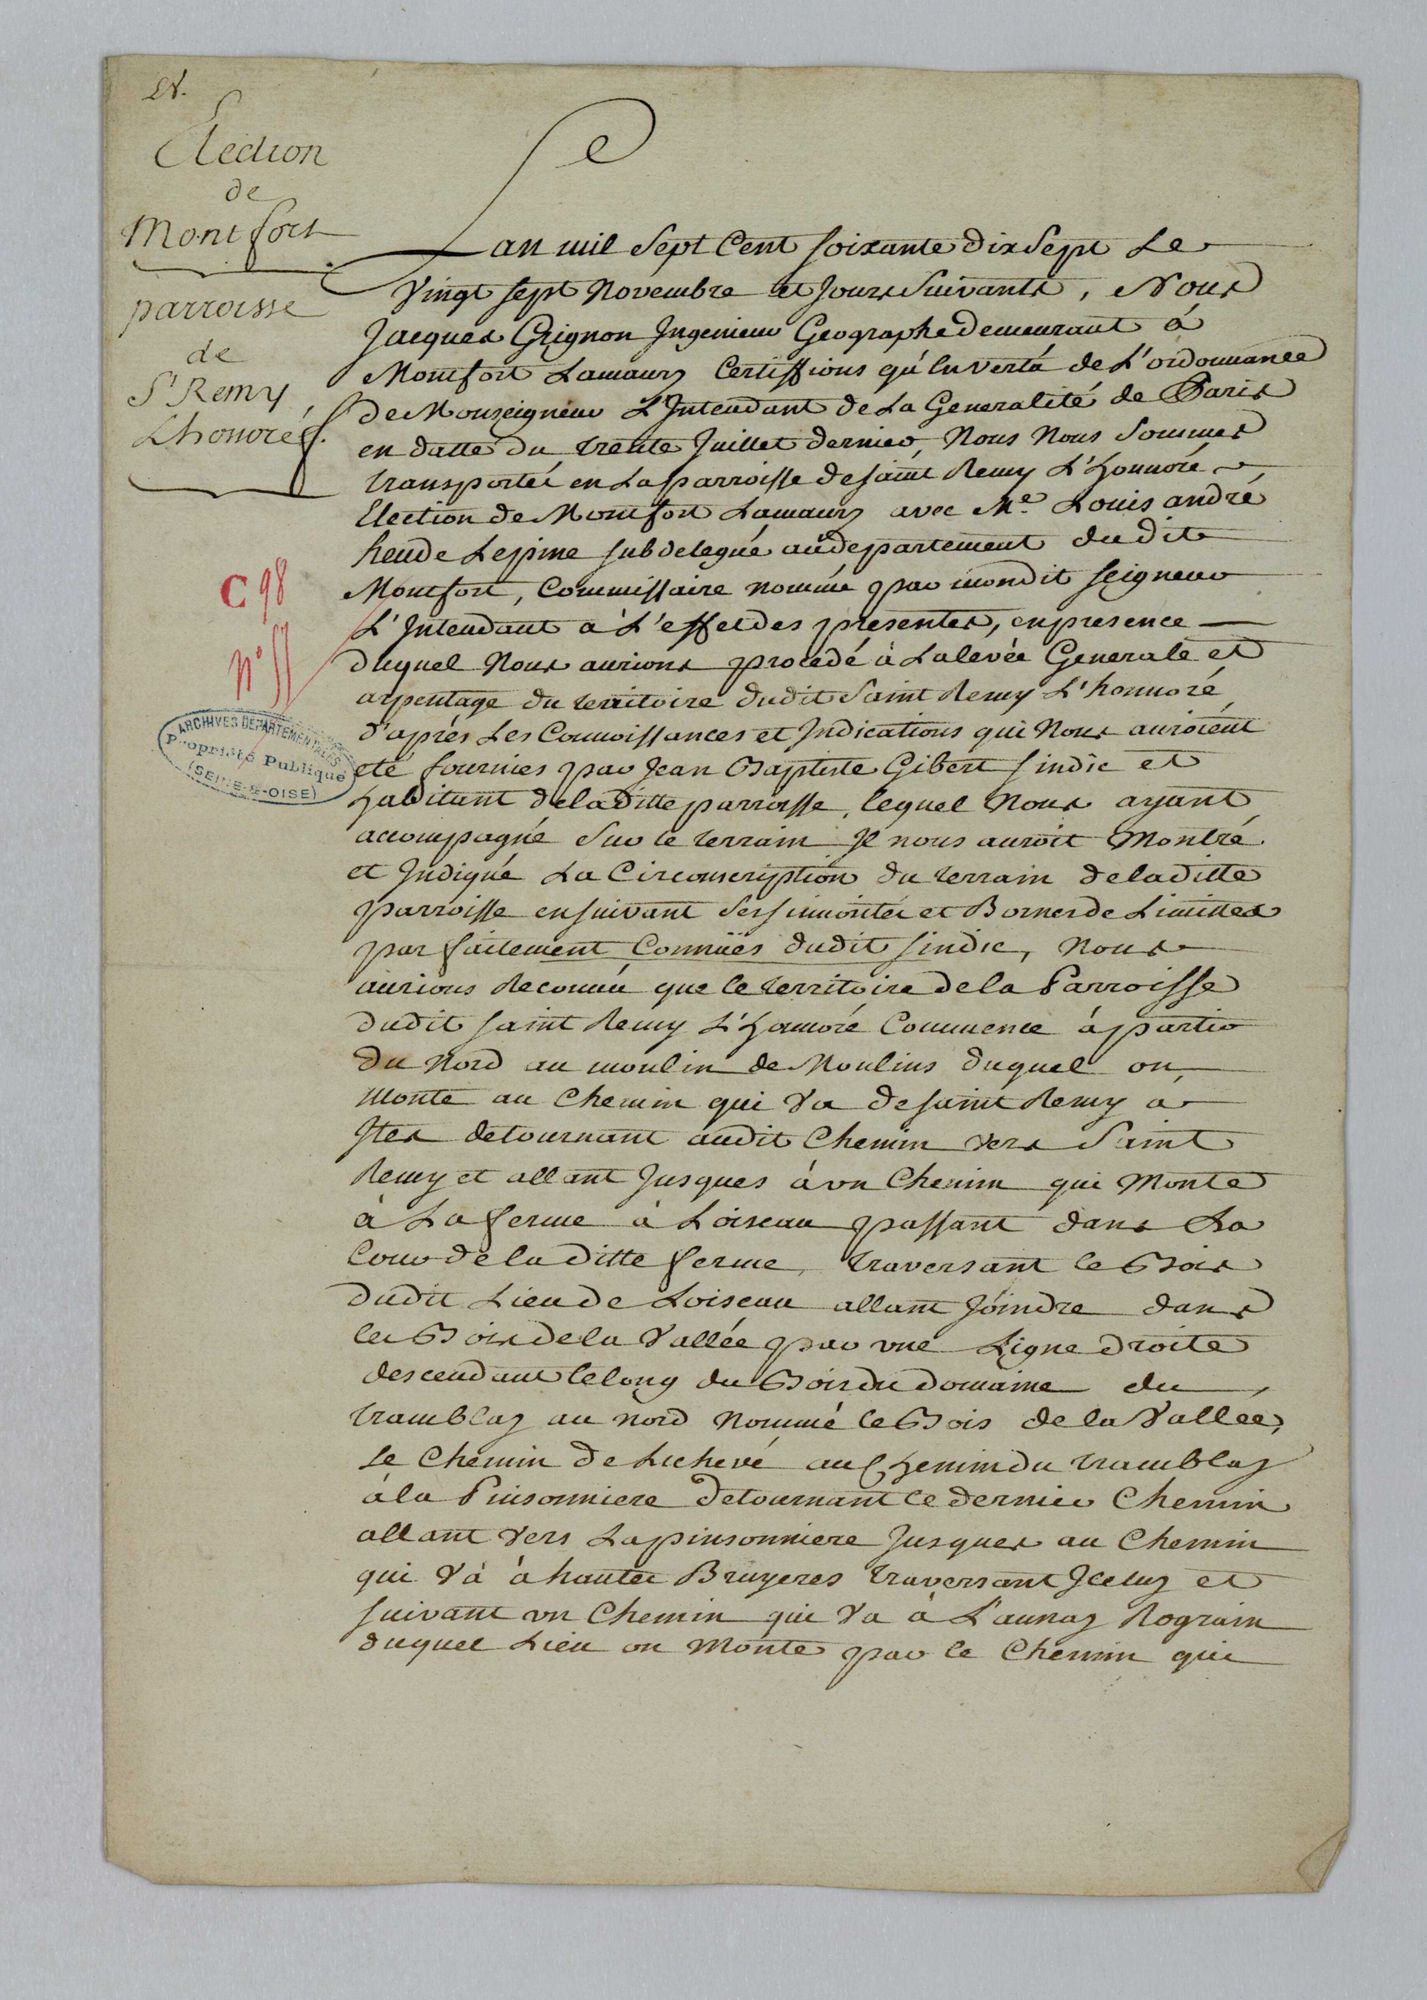 Election
de
Montfort
parroisse
de
St Remy
Lhonoré
C 98
N° 55
ARCHIVES DEPARTEMENTALES
Propriété Publique
(SEINE-&-OISE)
Lan mil Sept Cent soixante dix Sept Le
Vingt sept Novembre et Jours Suivants, Nous
Jacques Grignon Ingenieur Geographe demeurant à
Montfort Lamaury Certiffions qu'En vertu de L'ordonnance
de Monseigneur L'Intendant de La Generalité de Paris
en datte du trente Juillet dernier, Nous Nous Sommes
transportés en La parroisse de saint Remy L'Honnoré
Election de Montfort Lamaury avec Me. Louis andré
heude Lepine subdelegué au departement du dit
Montfort, Commissaire nommé par mondit seigneur
L'Intendant a L'effet des presentes, en presence
duquel Nous aurions procédé à La levée Generale et
arpentage du territoire dudit Saint Remy L'honnoré
d'après Les Connoissances et Indications qui Nous auroient
eté fournies par Jean Baptiste Gibert sindic et
habitant de la ditte parroisse, lequel Nous ayant
accompagné Sur le terrain Il nous auroit Montré
et Indiqué La Circonscription du terrain de la ditte
parroisse en suivant Ses sinuosités et Bornes de Limittes
parfaitement Connües dudit sindic, Nous
aurions Reconnu que le territoire de la Parroisse
dudit saint Remy L'Honoré Commence à partir
du Nord au moulin de Moulins duquel on
monte au Chemin qui Va de saint Remy a
Ites detournant audit Chemin vers Saint
Remy et allant Jusques à un Chemin qui Monte
à La ferme à Loiseau passant dans La
Cour de la ditte ferme, traversant le Bois
dudit Lieu de Loiseau allant Joindre dans
les Bois de la Vallée par une Ligne droite
descendant le long du Bois du domaine du
tramblay au nord nommé le Bois de la Vallée,
Le Chemin de Lichevé au Chemin du tramblay
à la Pinsonniere detournant le dernier Chemin
allant Vers La pinsonniere Jusques au Chemin
qui Va à hautes Bruyeres traversant Iceluy et
suivant un Chemin qui Va à L'aunay Rograin
duquel Lieu on Monte par le Chemin qui